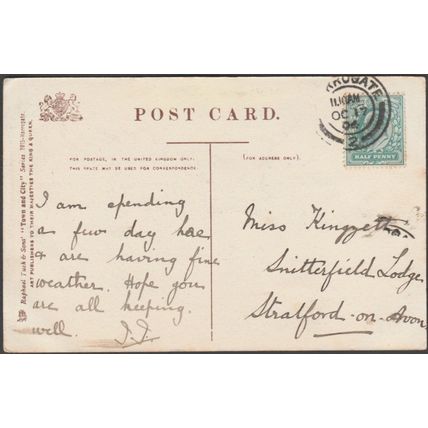 POST CARD.
FOR POSTAGE, IN THE UNITED KINGDOM ONLY,
THIS SPACE MAY BE USED FOR CORRESPONDENCE.
(FOR ADDRESS ONLY.)
Raphael Tuck & Sons' "Town and City" Series Harrogate.
ART PUBLISHERS TO THEIR MAJESTIES THE KING & QUEEN.
I am spending
a few day here
& are having fine
weather. Hope you
are all keeping
well. J.J.
Miss Kingzett
Snitterfield Lodge
Stratford-on-Avon
RROGATE
11.10AM
OC
04
HALF PENNY